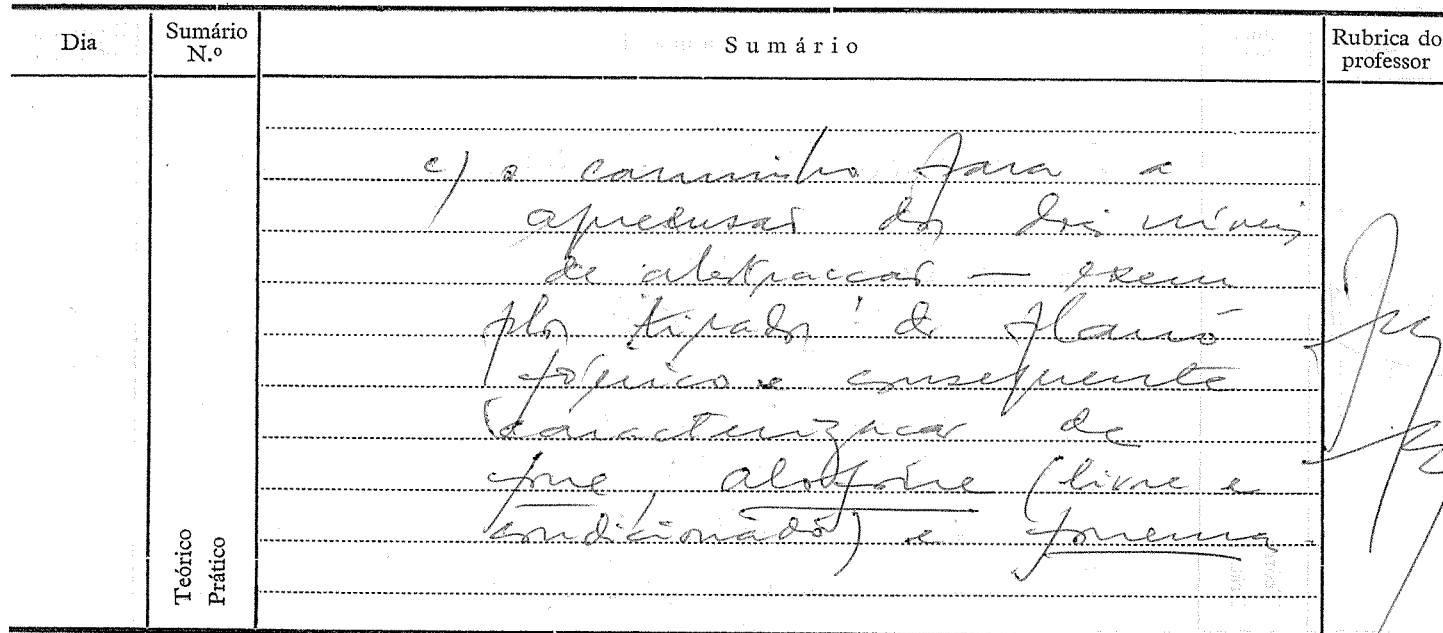 Dia
Sumário N.º
Sumário
Rubrica do professor
c) o caminho para a
apreensão dos dois níveis
de abstracção — exem
plos tirados do plano
fónico e consequente
caracterização de
fone, alofone (livre e
condicionado) e fonema
Teórico
Prático